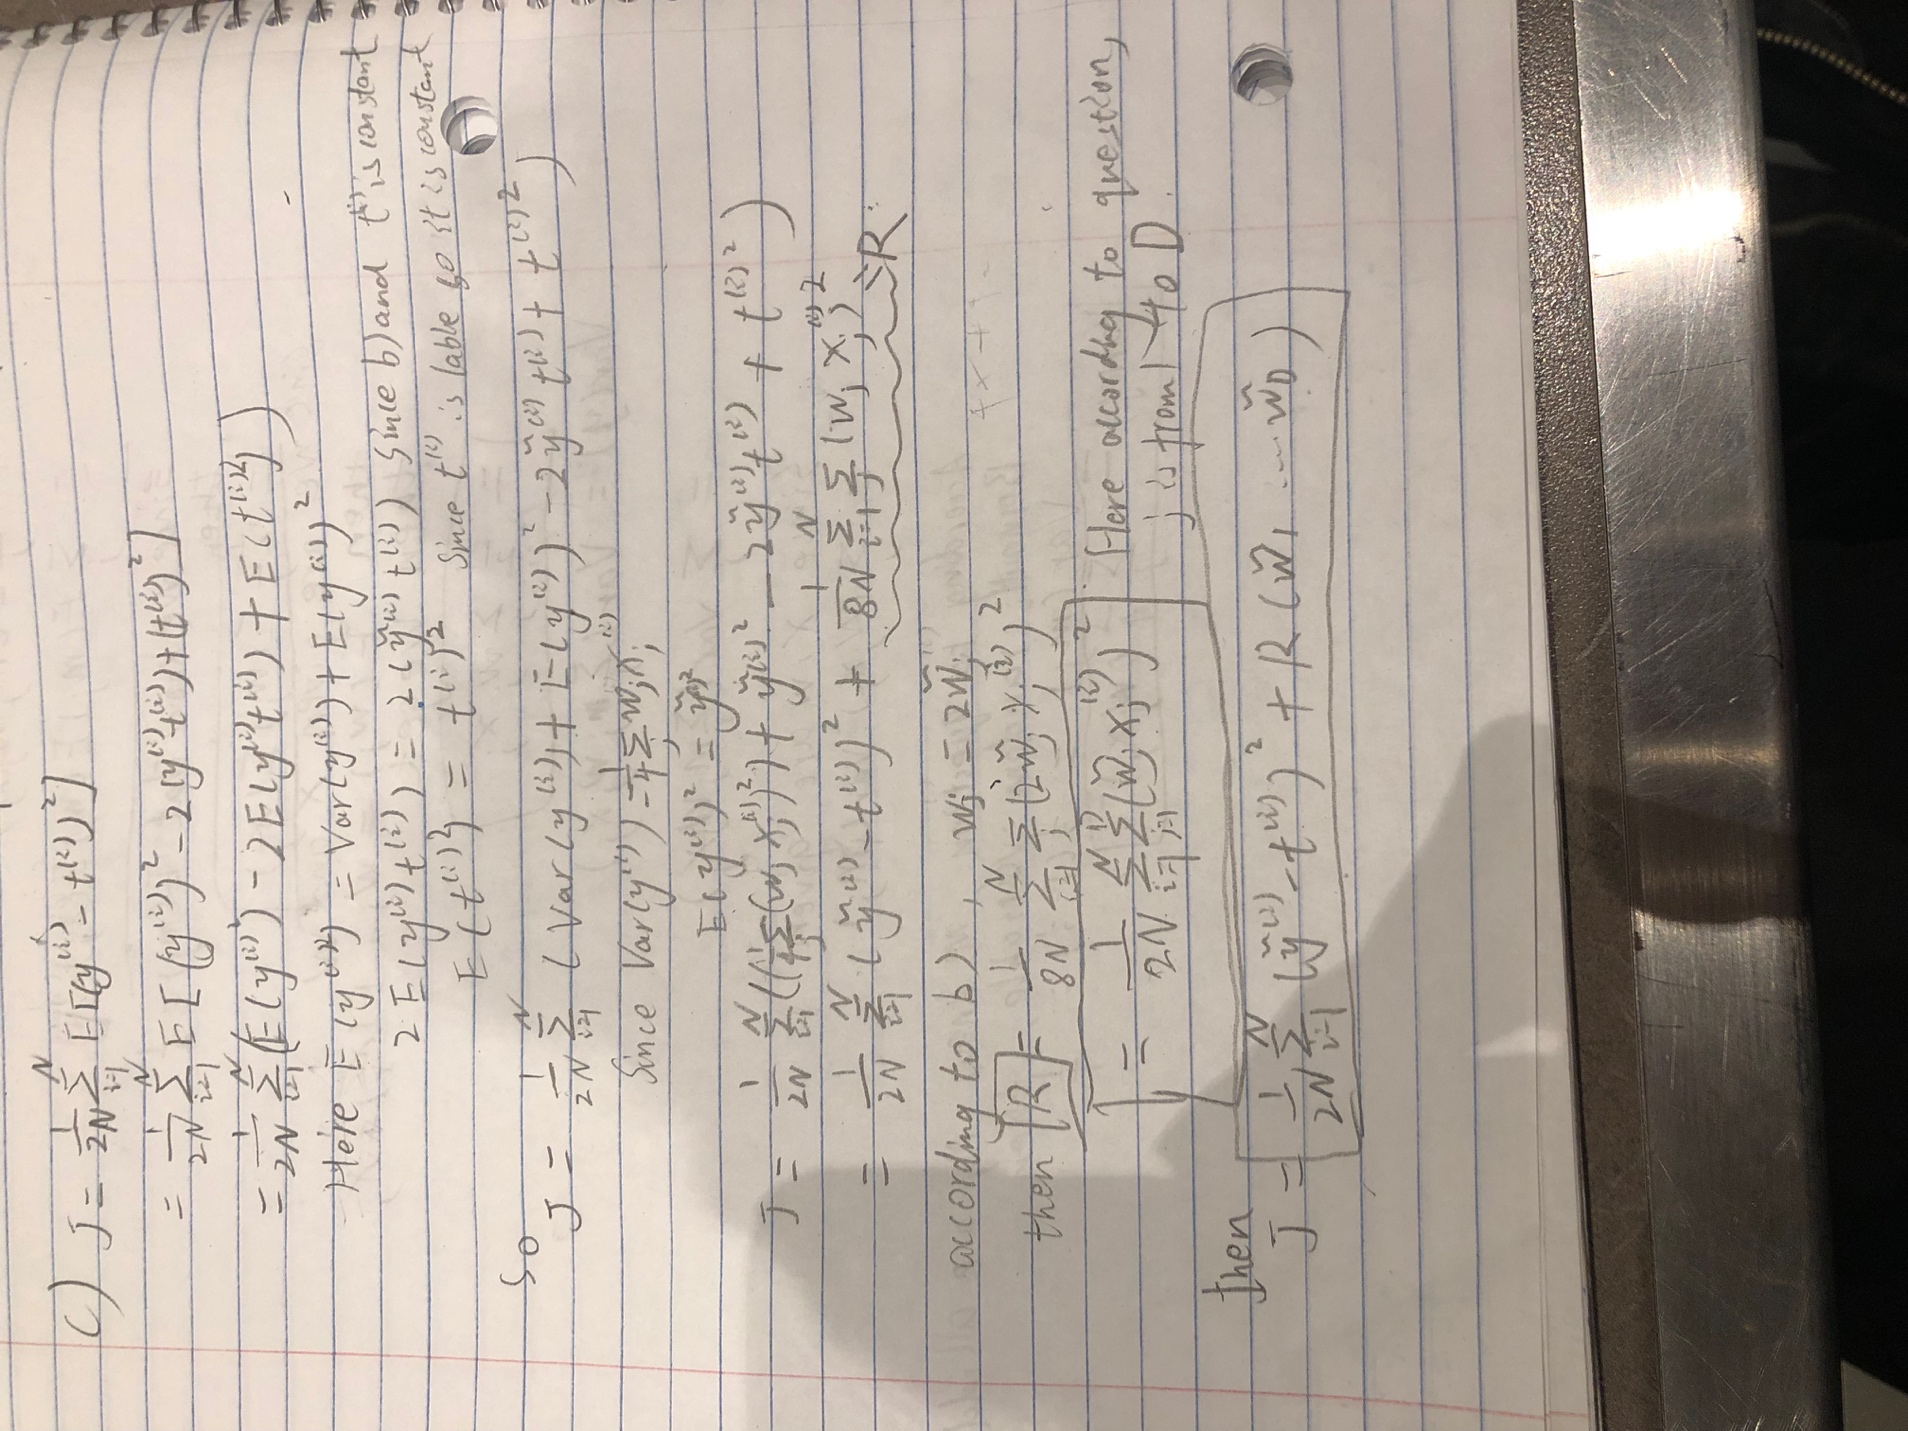 c) J = 1/2N Σ_{i=1}^{N} E[(y^{(i)} - t^{(i)})^2]
= 1/2N Σ_{i=1}^{N} E[(y^{(i)})^2 - 2(y^{(i)} t^{(i)}) + (t^{(i)})^2]
= 1/2N Σ_{i=1}^{N} (E(y^{(i)2}) - 2E(y^{(i)} t^{(i)}) + E(t^{(i)2}))
Here E(y^{(i)2}) = Var(y^{(i)}) + E(y^{(i)})^2
2E(y^{(i)} t^{(i)}) = 2(ỹ^{(i)} t^{(i)}) Since b) and t^{(i)} is constant
E(t^{(i)2}) = t^{(i)2} Since t^{(i)} is lable so it is constant
So
J = 1/2N Σ_{i=1}^{N} (Var(y^{(i)}) + E(y^{(i)})^2 - 2ỹ^{(i)} t^{(i)} + t^{(i)2})
Since Var(y^{(i)}) = 1/4 Σ_j w_j x_j^{(i)}
E(y^{(i)})^2 = ỹ^{(i)2}
J = 1/2N Σ_{i=1}^{N} ((1/4 Σ_j (w_j x_j^{(i)})^2) + ỹ^{(i)2} - 2ỹ^{(i)} t^{(i)} + t^{(i)2})
= 1/2N Σ_{i=1}^{N} (ỹ^{(i)} - t^{(i)})^2 + 1/8N Σ_{i=1}^{N} Σ_j (w_j x_j^{(i)})^2 → R.
according to b), w_j = 2w̃_j
then R = 1/8N Σ_{i=1}^{N} Σ_j (2w̃_j x_j^{(i)})^2
= 1/2N Σ_{i=1}^{N} Σ_{j=1}^{D} (w̃_j x_j^{(i)})^2. (Here according to question,
j is from 1 to D.
then
J = 1/2N Σ_{i=1}^{N} (ỹ^{(i)} - t^{(i)})^2 + R(w̃_1 ... w̃_D)